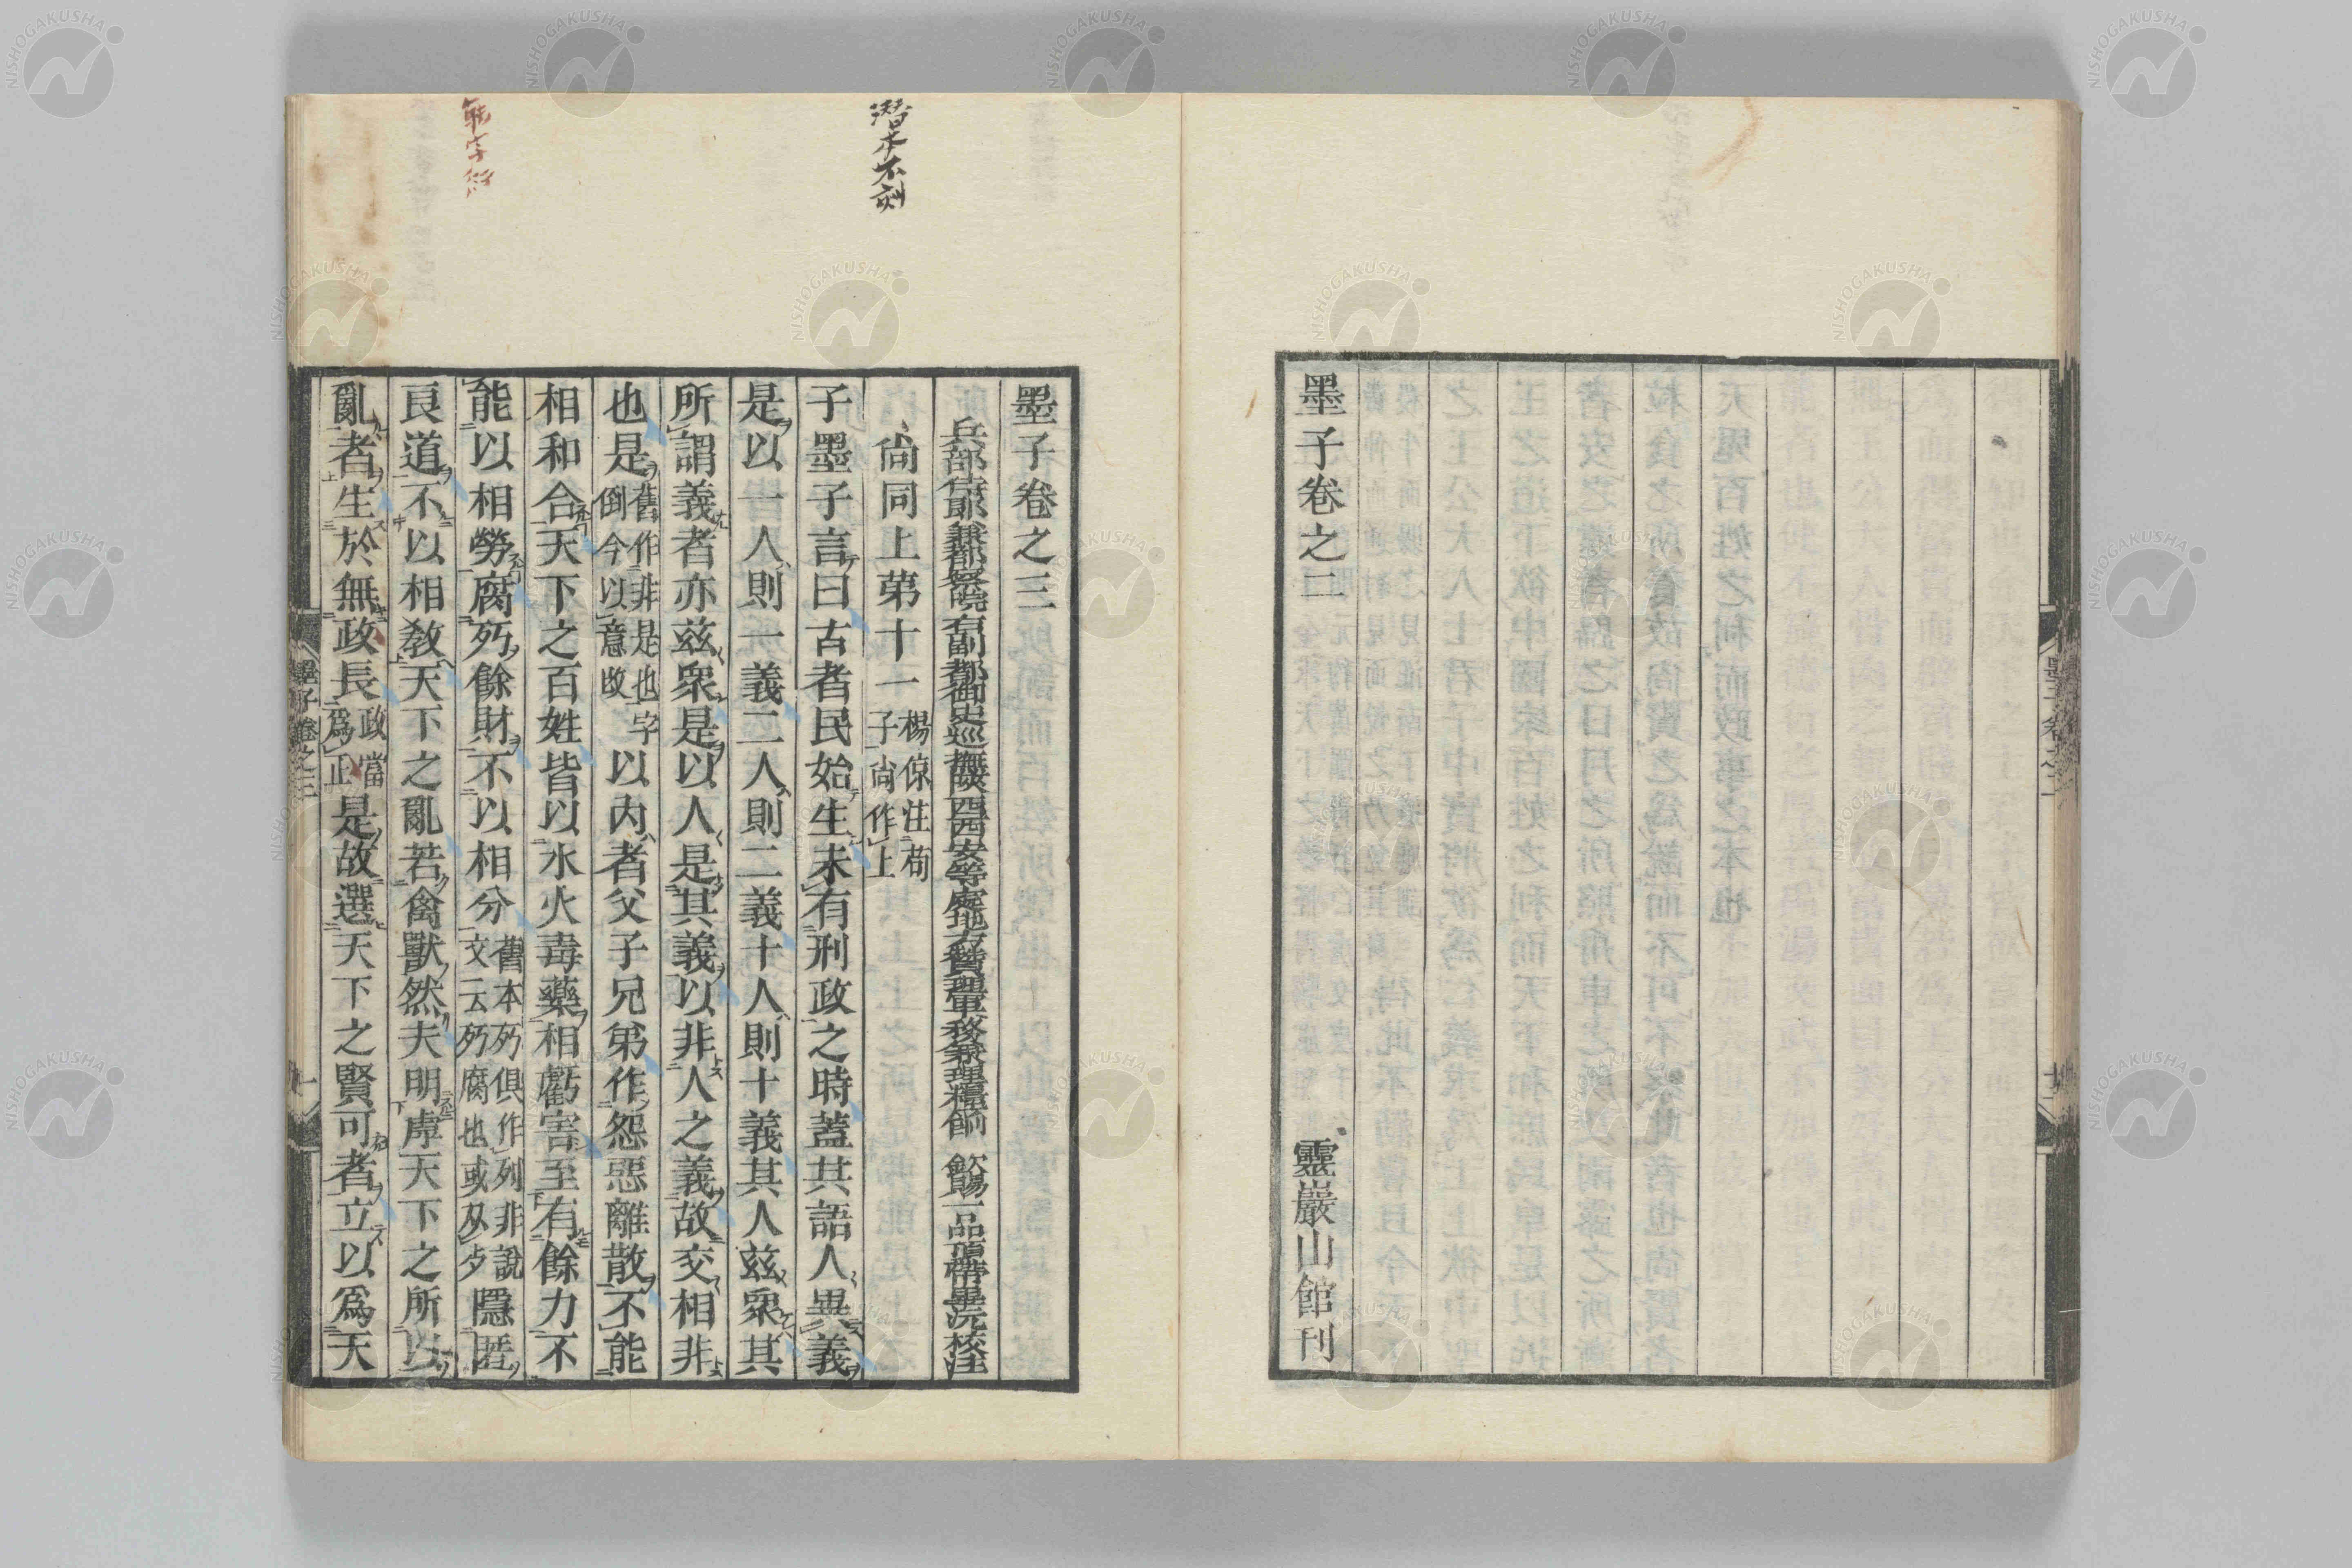 墨子卷之二
靈巖山館刊
潛本不刻
墨子卷之三
兵部侍郎兼都察院右副都御史巡撫陝西西安等處地方贊理軍務兼理糧餉 欽賜一品頂帶畢沅校注
尙同上第十一 楊倞注荀子尙作上
子墨子言曰古者民始生未有刑政之時蓋其語人異義
是以一人則一義二人則二義十人則十義其人兹衆其
所謂義者亦兹衆是以人是其義以非人之義故交相非
也是 舊作非是也字倒今以意改 以内者父子兄弟作怨惡離散不能
相和合天下之百姓皆以水火毒藥相虧害至有餘力不
能以相勞腐㱙餘財不以相分 舊本㱙俱作列非說文云㱙腐也或从歺 隱匿
良道不以相敎天下之亂若禽獸然夫明虖天下之所以
亂者生於無政長 政當爲正 是故選天下之賢可者立以爲天
墨子卷之三
一